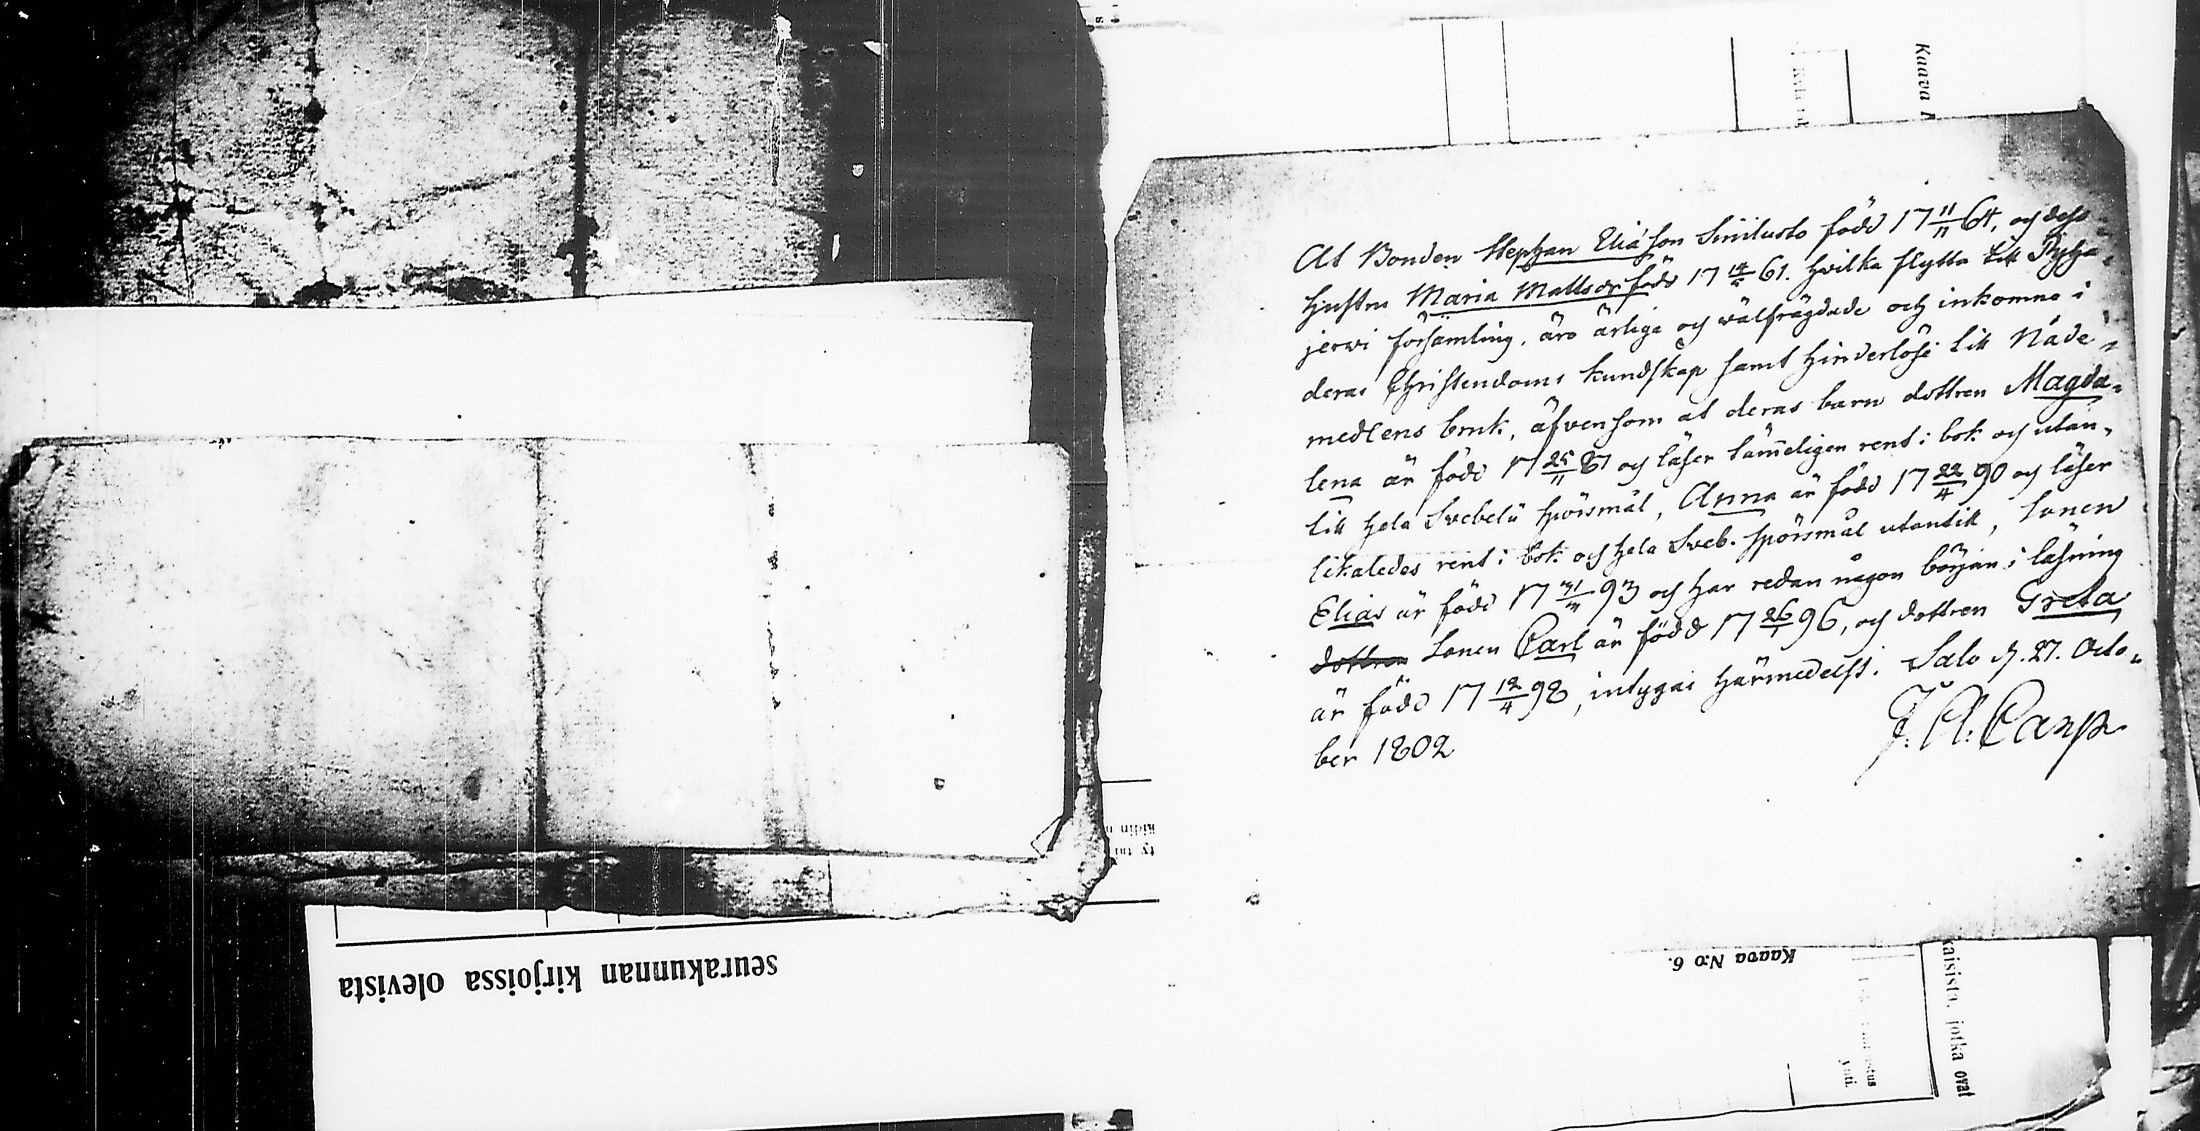 At Bonden Stephan Eliæson Sinilusto född 17 11/11 64, och dess
hustru Maria Mattsdr född 17 14/5 61. hvilka flytta till Pyhä-
jerwi församling, äro ärliga och wälfrägdade och inkomne i
deras Christendoms kundskap samt hinderlöse till Nåde-
medlens bruk, äfvensom at deras barn dottren Magda-
lena är född 17 25/11 87 och läser tämeligen rent i bok och utan-
till hela Svebelii spörsmål, Anna är född 17 22/4 90 och läser
likaledes rent i bok och hela Sveb. spörsmål utantill, Sonen
Elias är född 17 31/3 93 och har redan någon början i läsning
dottren Sonen Carl är född 17 26/1 96, och dottren Greta
är född 17 12/4 98, intygas härmedelst. Salo d. 27. Octo-
ber 1802
seurakunnan kirjoissa olevista
Kaava N:o 6.
kaisista, jotka ovat
Kaava